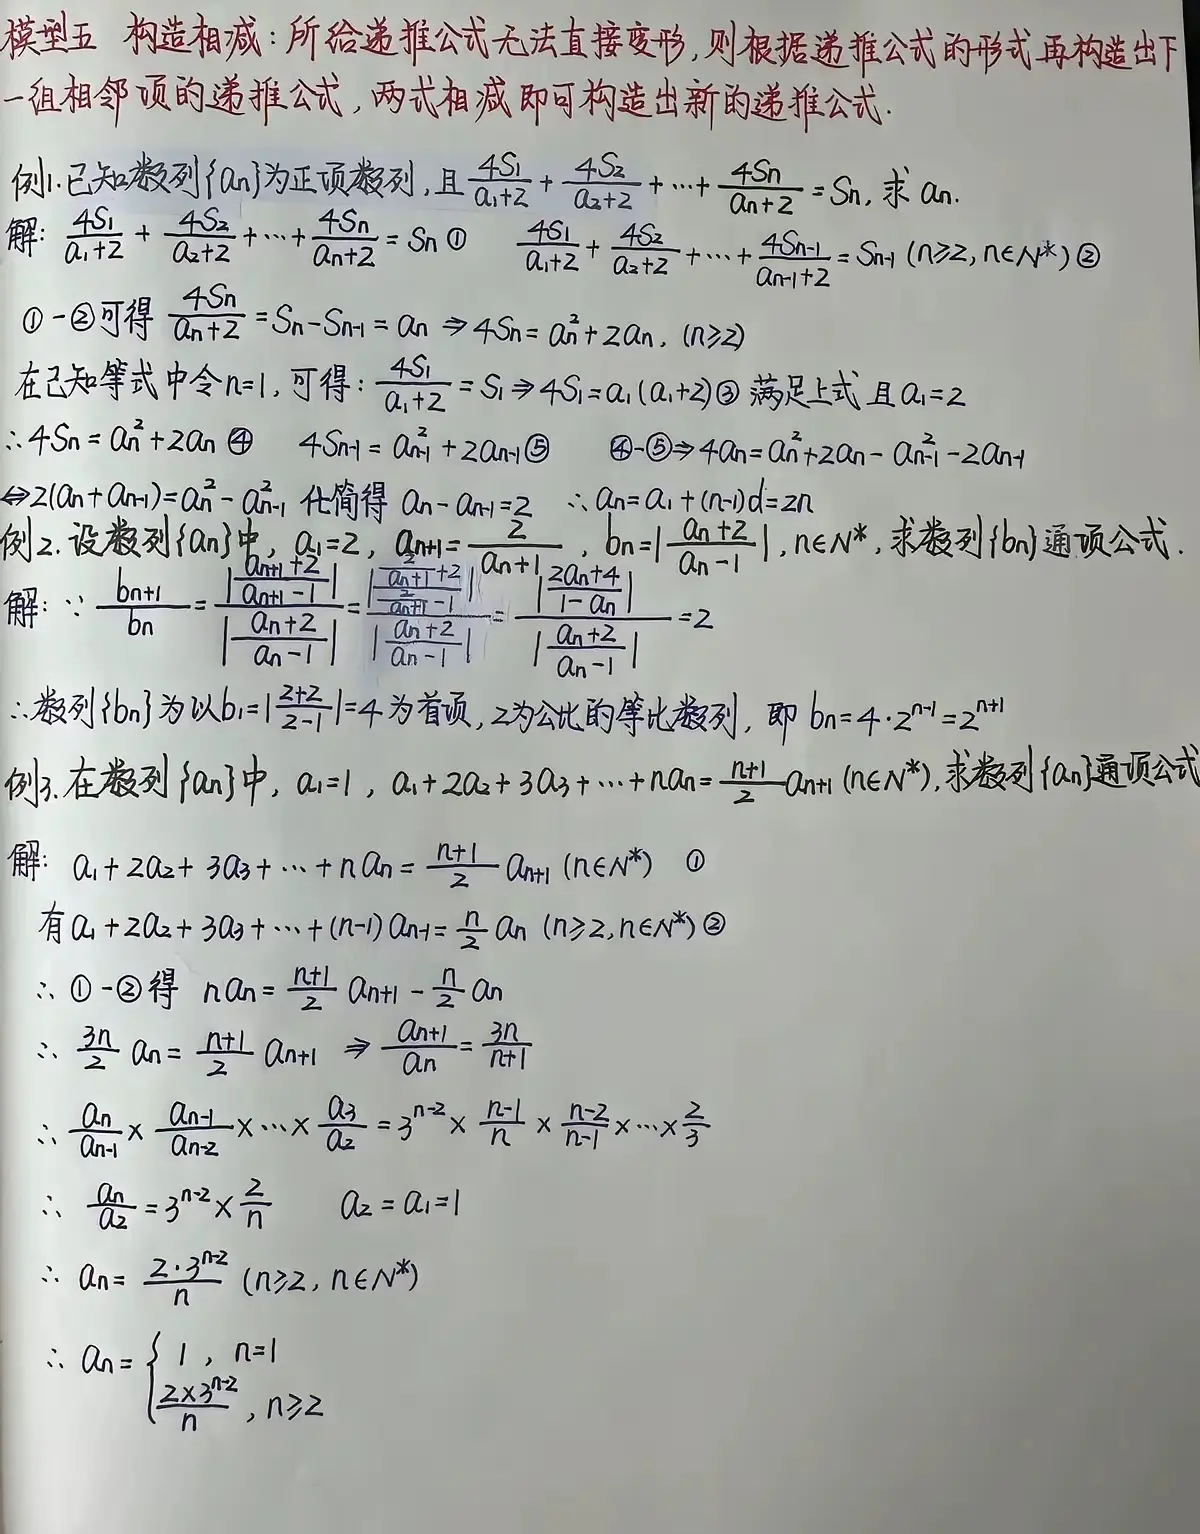 模型五 构造相减:所给递推公式无法直接变形,则根据递推公式的形式再构造出下
一组相邻项的递推公式,两式相减即可构造出新的递推公式.
例1.已知数列{an}为正项数列,且 4S1/(a1+2) + 4S2/(a2+2) + … + 4Sn/(an+2) = Sn, 求 an.
解: 4S1/(a1+2) + 4S2/(a2+2) + … + 4Sn/(an+2) = Sn ① 4S1/(a1+2) + 4S2/(a2+2) + … + 4Sn-1/(an-1+2) = Sn-1 (n≥2, n∈N*) ②
①-②可得 4Sn/(an+2) = Sn-Sn-1 = an ⇒ 4Sn = an²+2an, (n≥2)
在已知等式中令n=1,可得: 4S1/(a1+2) = S1 ⇒ 4S1=a1(a1+2)③ 满足上式 且a1=2
∴4Sn=an²+2an ④ 4Sn-1=an-1²+2an-1⑤ ④-⑤⇒4an=an²+2an-an-1²-2an-1
⇔2(an+an-1)=an²-an-1² 化简得 an-an-1=2 ∴an=a1+(n-1)d=2n
例2.设数列{an}中, a1=2, an+1=2/(an+1), bn=|(an+2)/(an-1)|, n∈N*, 求数列{bn}通项公式.
解: ∵ bn+1/bn = |(an+1+2)/(an+1-1)| / |(an+2)/(an-1)| = |(2/(an+1)+2)/(2/(an+1)-1)| / |(an+2)/(an-1)| = |(2an+4)/(1-an)| / |(an+2)/(an-1)| = 2
∴数列{bn}为以b1=|(2+2)/(2-1)|=4为首项, 2为公比的等比数列, 即 bn=4·2^(n-1)=2^(n+1)
例3.在数列{an}中, a1=1, a1+2a2+3a3+…+nan=(n+1)/2 an+1 (n∈N*), 求数列{an}通项公式
解: a1+2a2+3a3+…+nan=(n+1)/2 an+1 (n∈N*) ①
有a1+2a2+3a3+…+(n-1)an-1=n/2 an (n≥2, n∈N*) ②
∴ ①-②得 nan=(n+1)/2 an+1 - n/2 an
∴ 3n/2 an = (n+1)/2 an+1 ⇒ an+1/an = 3n/(n+1)
∴ an/an-1 × an-1/an-2 × … × a3/a2 = 3^(n-2) × (n-1)/n × (n-2)/(n-1) × … × 2/3
∴ an/a2 = 3^(n-2) × 2/n a2=a1=1
∴ an = 2·3^(n-2)/n (n≥2, n∈N*)
∴ an = { 1, n=1
2×3^(n-2)/n, n≥2